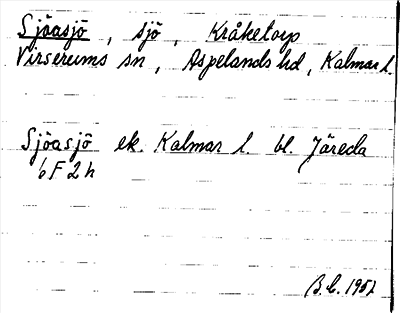 Sjöasjö, sjö, Kråketorp
Virserums sn, Aspelands hd, Kalmar l.
Sjöasjö ek. Kalmar l. bl. Järeda
6 F 2 h
B.L. 1951